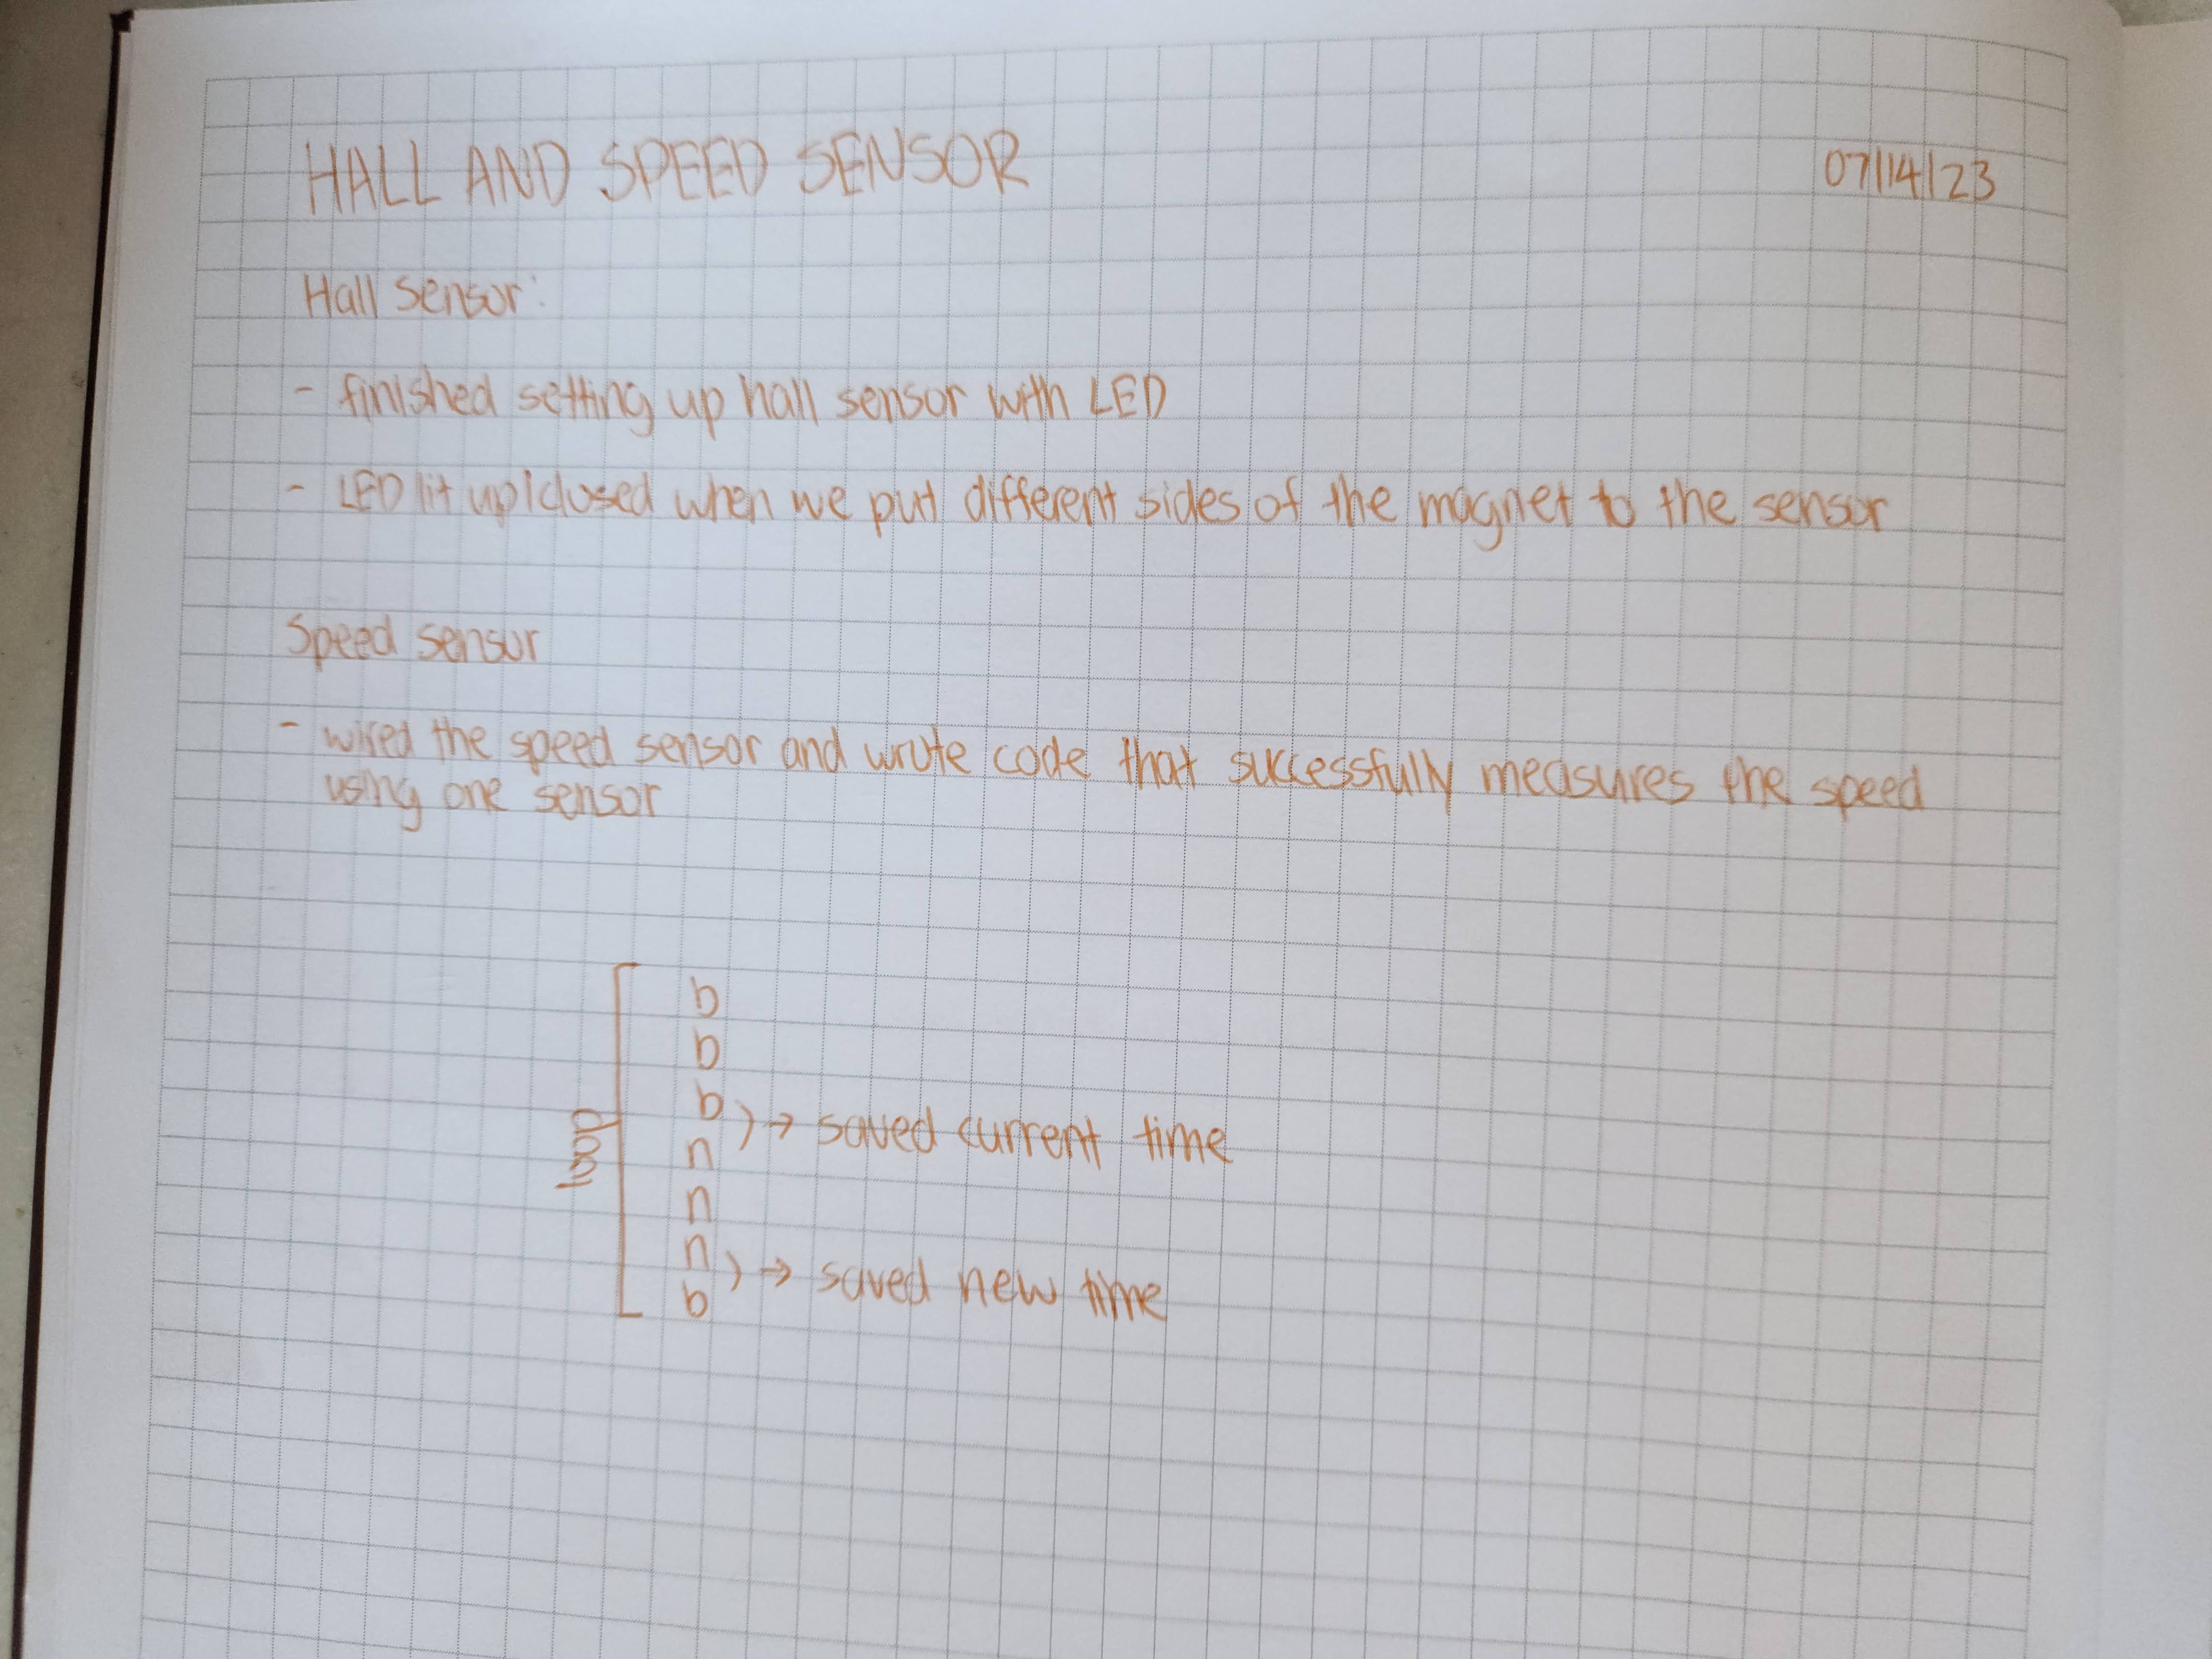 HALL AND SPEED SENSOR
07/14/23
Hall sensor:
- finished setting up hall sensor with LED
- LED lit up/closed when we put different sides of the magnet to the sensor
Speed sensor
- wired the speed sensor and wrote code that successfully measures the speed
using one sensor
loop
b
b
b
→ saved current time
n
n
n
→ saved new time
b